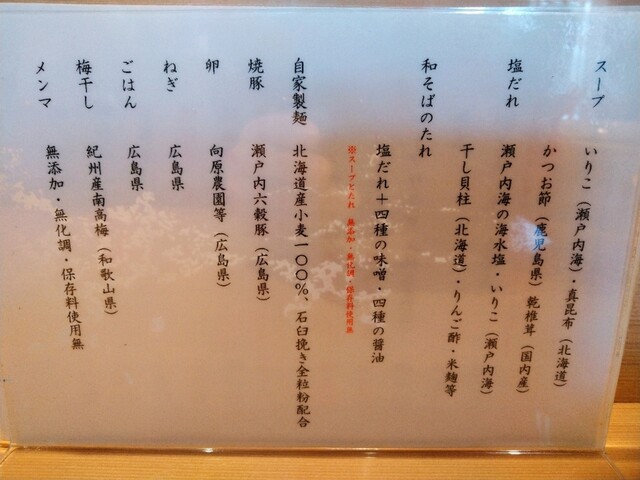 スープ
いりこ（瀬戸内海）・真昆布（北海道）
かつお節（鹿児島県）乾椎茸（国内産）
塩だれ
瀬戸内海の海水塩・いりこ（瀬戸内海）
干し貝柱（北海道）・りんご酢・米麹等
和そばのたれ
塩だれ＋四種の味噌・四種の醤油
※スープとたれ　無添加・無化調・保存料使用無
自家製麺　北海道産小麦一〇〇％、石臼挽き全粒粉配合
焼豚　瀬戸内六穀豚（広島県）
卵　向原農園等（広島県）
ねぎ　広島県
ごはん　広島県
梅干し　紀州産南高梅（和歌山県）
メンマ　無添加・無化調・保存料使用無